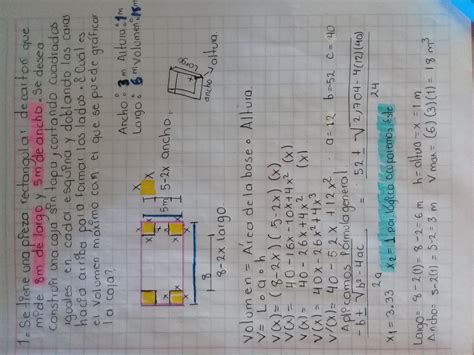 1.- Se tiene una pieza rectangular de cartón que
mide 8m de largo y 5m de ancho. Se desea
construir una caja sin tapa, cortando cuadrados
iguales en cada esquina y doblando las caras
hacia arriba para formar los lados. ¿Cuál es
el volumen máximo con el que se puede graficar
la caja?
Ancho: 3m Altura: 1m
Largo: 6m Volumen: 18m³
Largo
ancho
altura
x
x
x
x
x
x
x
x
x
x
5m
5-2x ancho.
8
8-2x largo.
Volumen = Área de la base • Altura
V = L • a • h
V(x) = (8-2x)(5-2x)(x)
V(x) = 40-16x-10x+4x² (x)
V(x) = 40-26x+4x² (x)
V(x) = 40x-26x²+4x³
V'(x) = 40-52x+12x²
a=12 b=52 c=40
Aplicamos fórmula general
-b ± √b²-4ac
2a
= 52 ± √2,704-4(12)(40)
24
x₁ = 3.33
x₂ = 1 por lógica ocuparemos éste
Largo = 8-2(1) = 8-2 = 6m
h = altura = x = 1m
Ancho = 5-2(1) = 5-2 = 3m
Vmax = (6)(3)(1) = 18m³